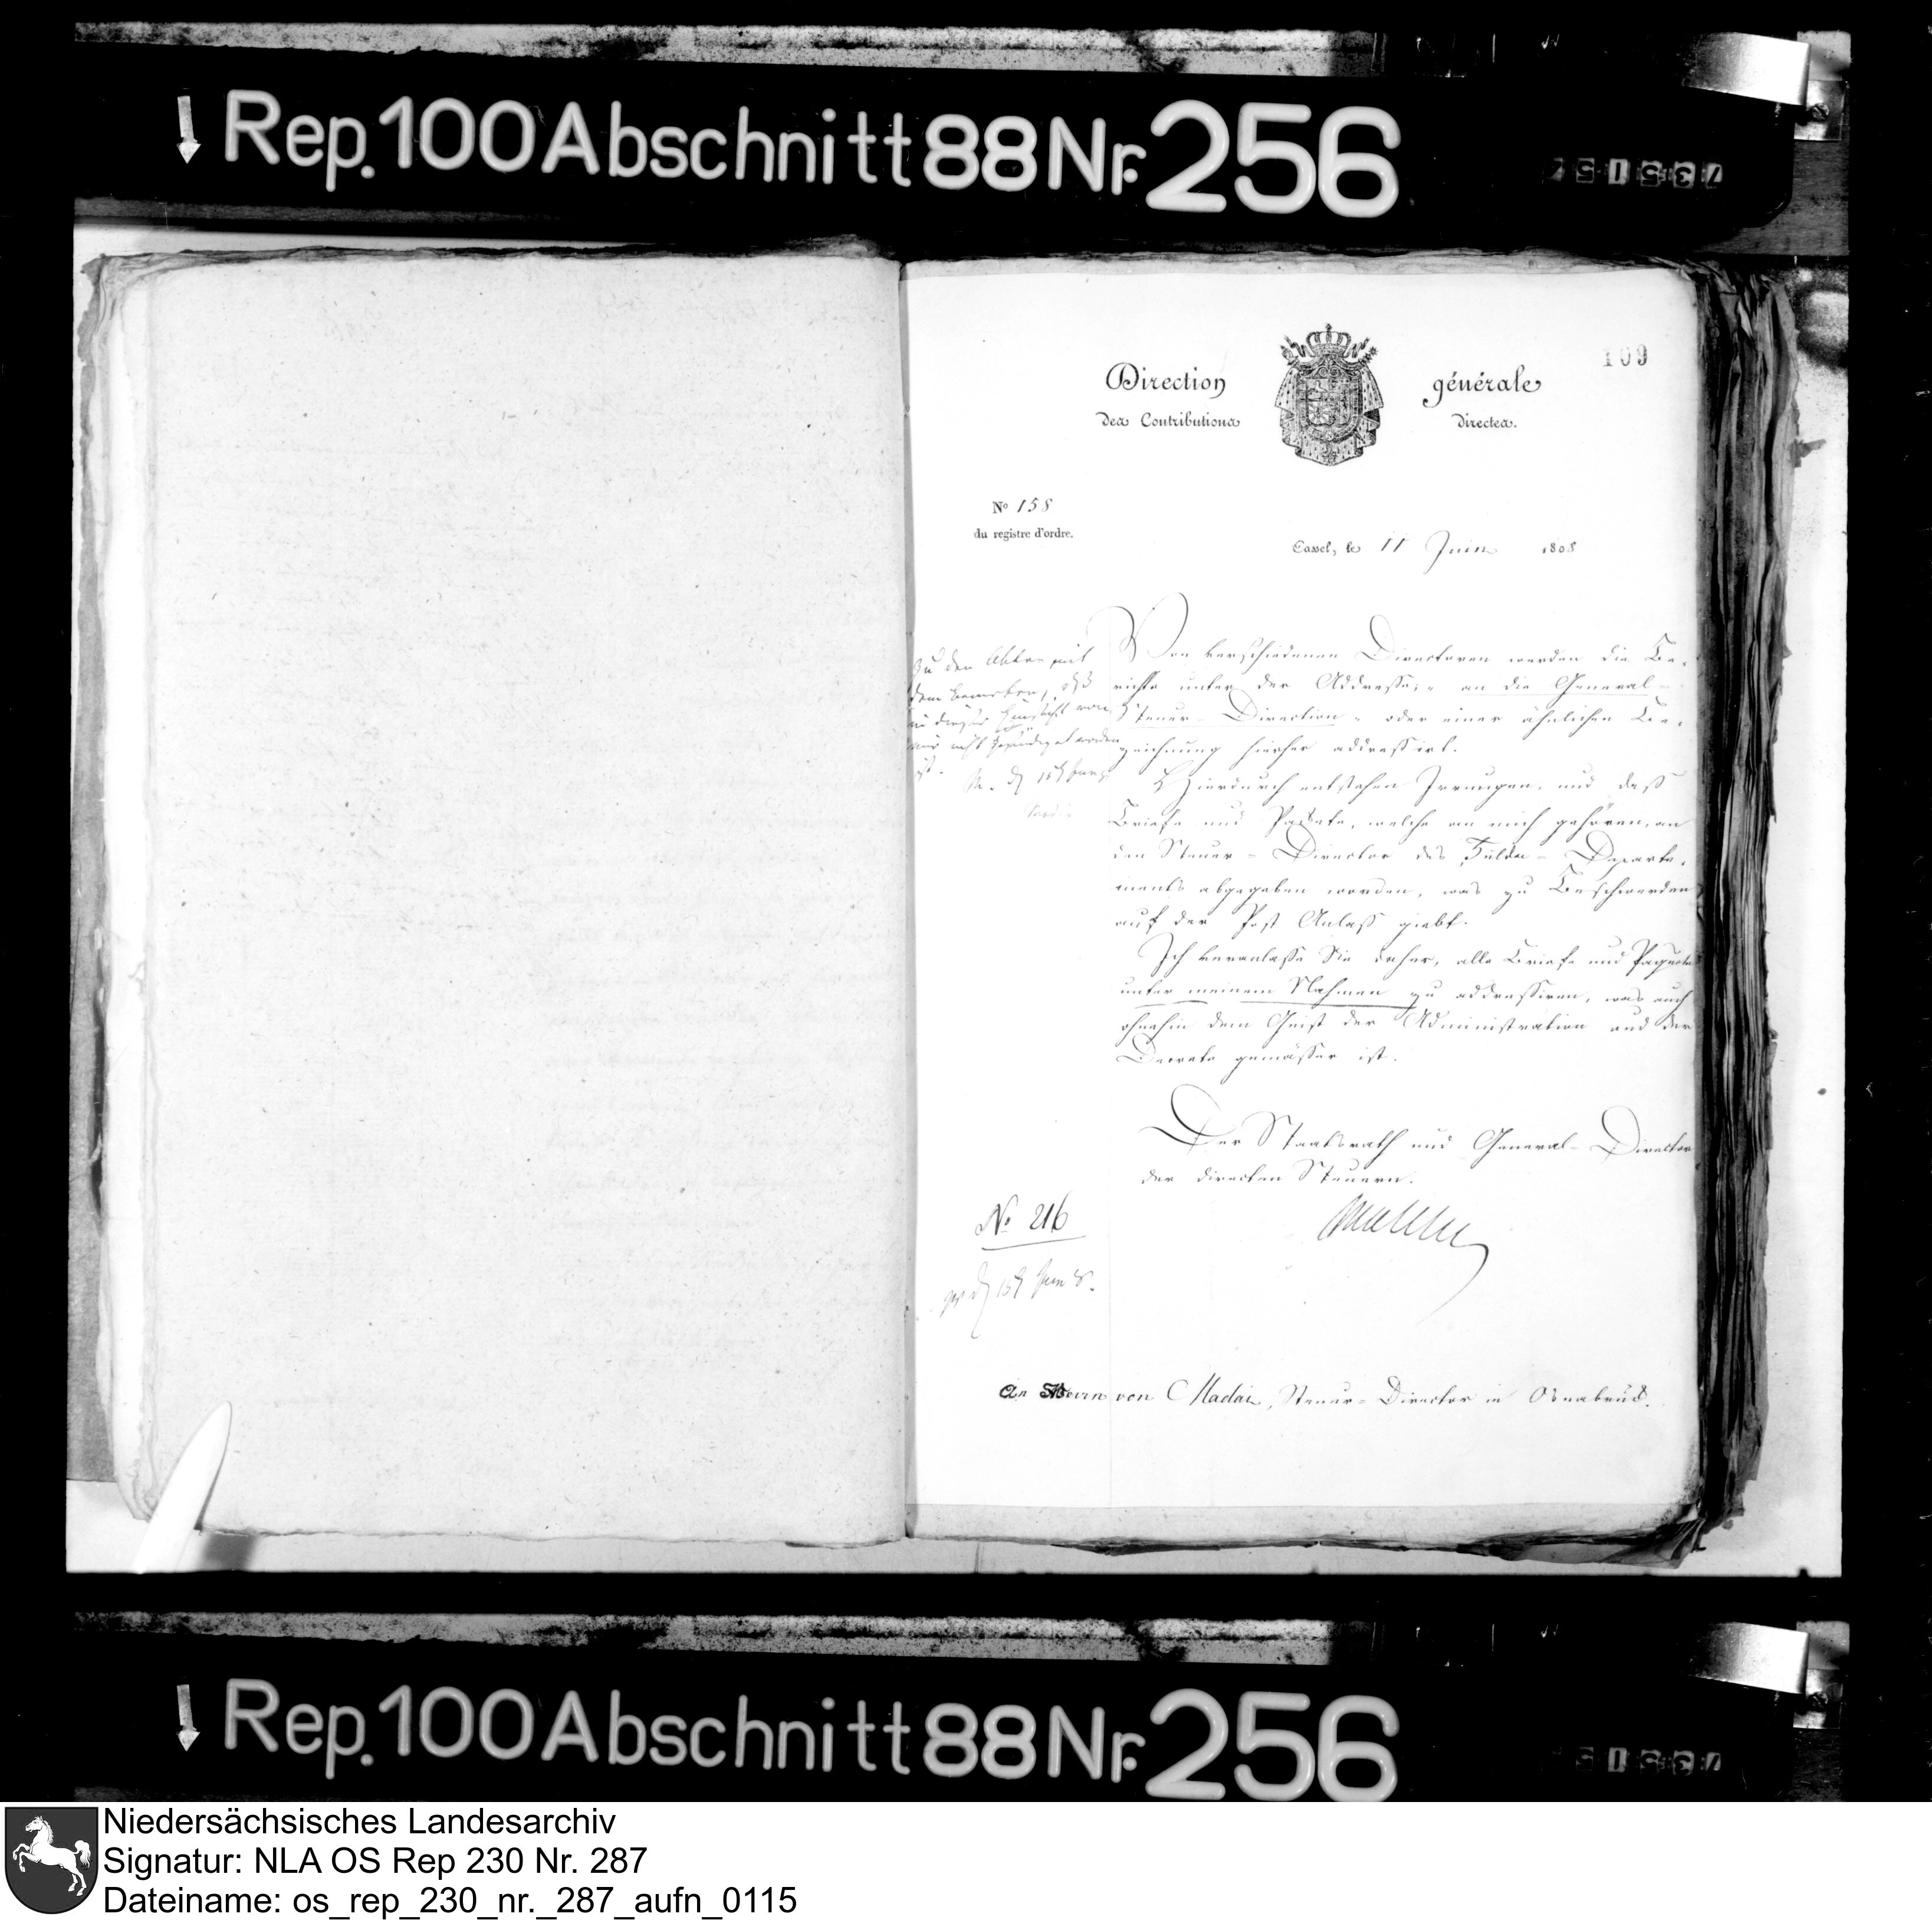 Rep. 100 Abschnitt 88 Nr. 256
735157
109
Direction générale
des Contributions directes.
No 158
du registre d'ordre.
Cassel, le 11 Juin 1808
Von verschiedenen Directoren werden die Be-
richte unter der Addresse, „ an die General-
Steuer-Direction „ oder einer ähnlichen Be-
zeichnung hierher addressirt.
Hierdurch entstehen Irrungen, und daß
Briefe und Packete, welche an mich gehören, an
den Steuer-Director des Fulda-Departe-
ments abgegeben worden, was zu Beschwerden
auf der Post Anlaß giebt.
Ich veranlasse Sie daher, alle Briefe und Paquete
unter meinem Nahmen zu addressiren, was auch
ohnehin dem Geist der Administration und der
Decrete gemässer ist.
Der Staatsrath und General-Director
der directen Steuern.
zu den Akten mit
dem bemerken, daß
in dieser Hinsicht von
mir nicht gesündiget worden
ist.
No 216
An Herrn von Madai, Steuer-Director in Osnabrück.
Rep. 100 Abschnitt 88 Nr. 256
Niedersächsisches Landesarchiv
Signatur: NLA OS Rep 230 Nr. 287
Dateiname: os_rep_230_nr._287_aufn_0115